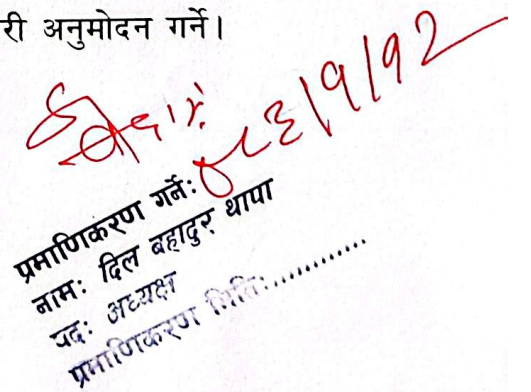 री अनुमोदन गर्ने।
८३/१/१२
प्रमाणिकरण गर्ने:
नाम: दिल बहादुर थापा
पद: अध्यक्ष
प्रमाणिकरण मिति:.............